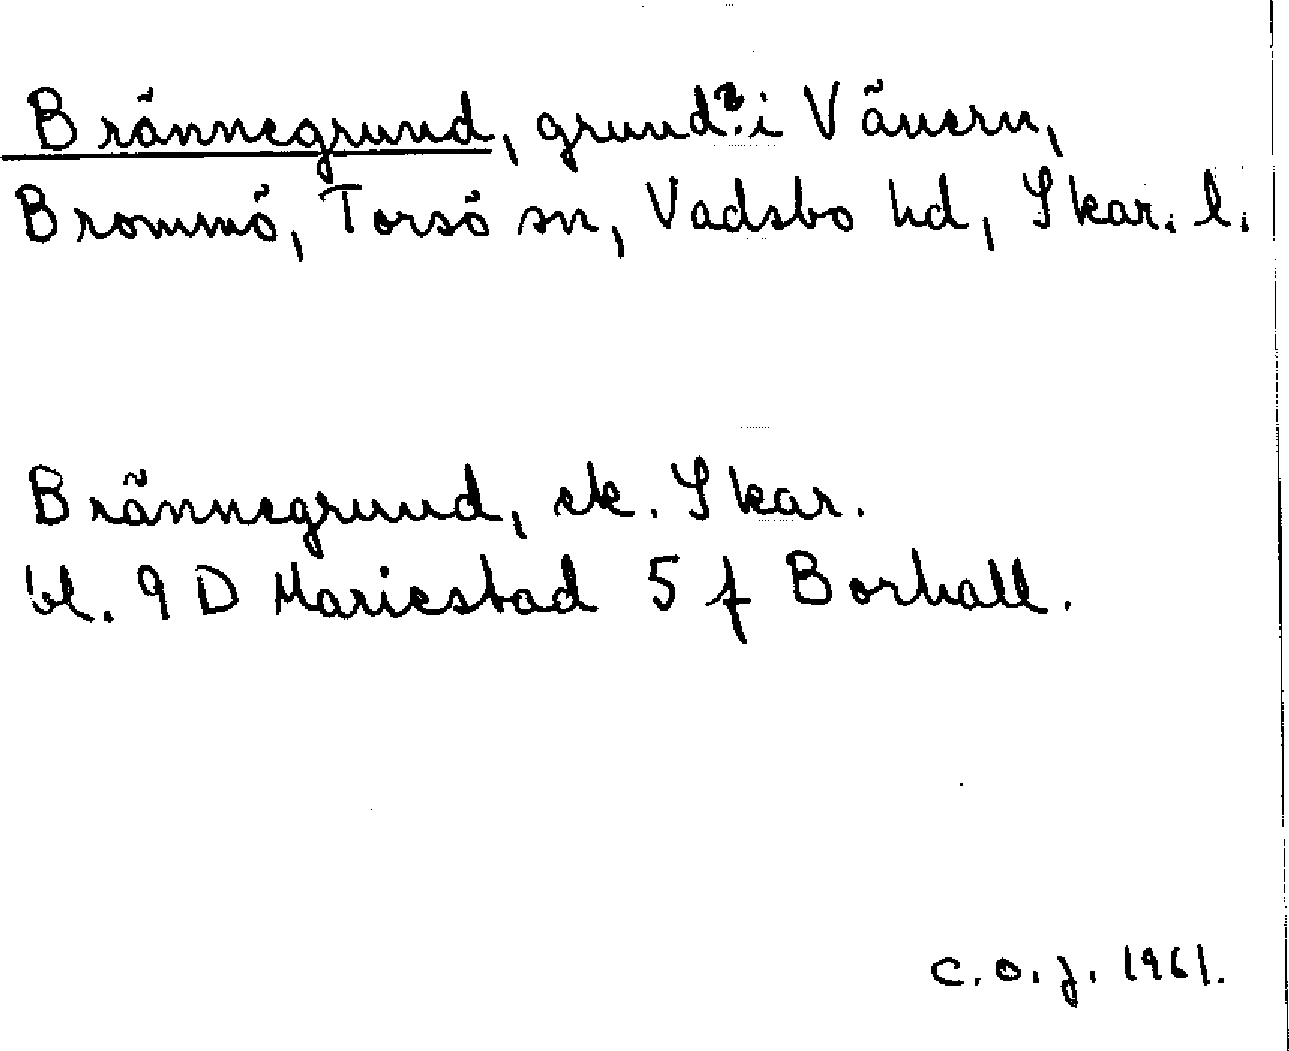 Brännegrund, grund? i Vänern,
Brommö, Torsö sn, Vadsbo hd, Skar. l.
Brännegrund, ek. Skar.
bl. 9 D Mariestad 5 f Borhall.
C. O. J. 1961.